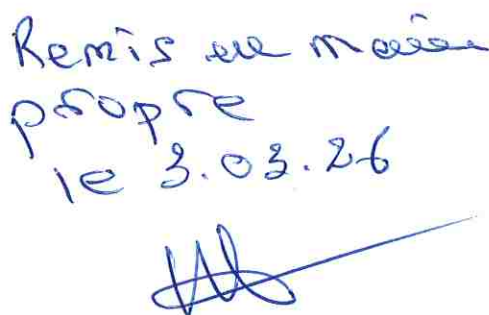 Remis en main
propre
le 3.03.26